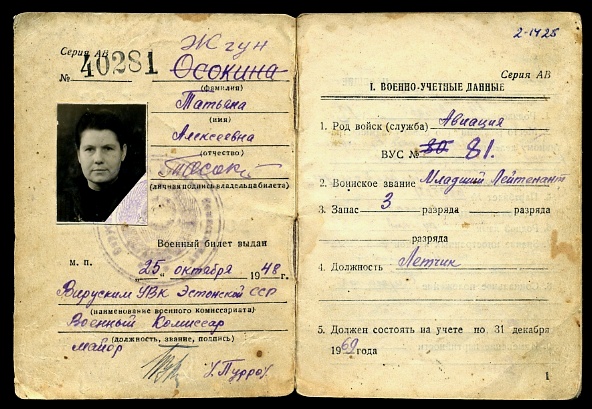 Жгун
Серия АВ
№ 40281 Осокина
(фамилия)
Татьяна
(имя)
Алексеевна
(отчество)
(личная подпись владельца билета)
Военный билет выдан
М. П.
„25" октября 1948 г.
Вируским УВК Эстонской ССР
(наименование военного комиссариата)
Военный Комиссар
(должность, звание, подпись)
майор
2-1425
Серия АВ
I. ВОЕННО-УЧЕТНЫЕ ДАННЫЕ
1. Род войск (служба) Авиация
ВУС № 80 81.
2. Воинское звание Младший Лейтенант
3. Запас 3 разряда разряда
разряда
4. Должность Летчик
5. Должен состоять на учете по 31 декабря
1969 года
1